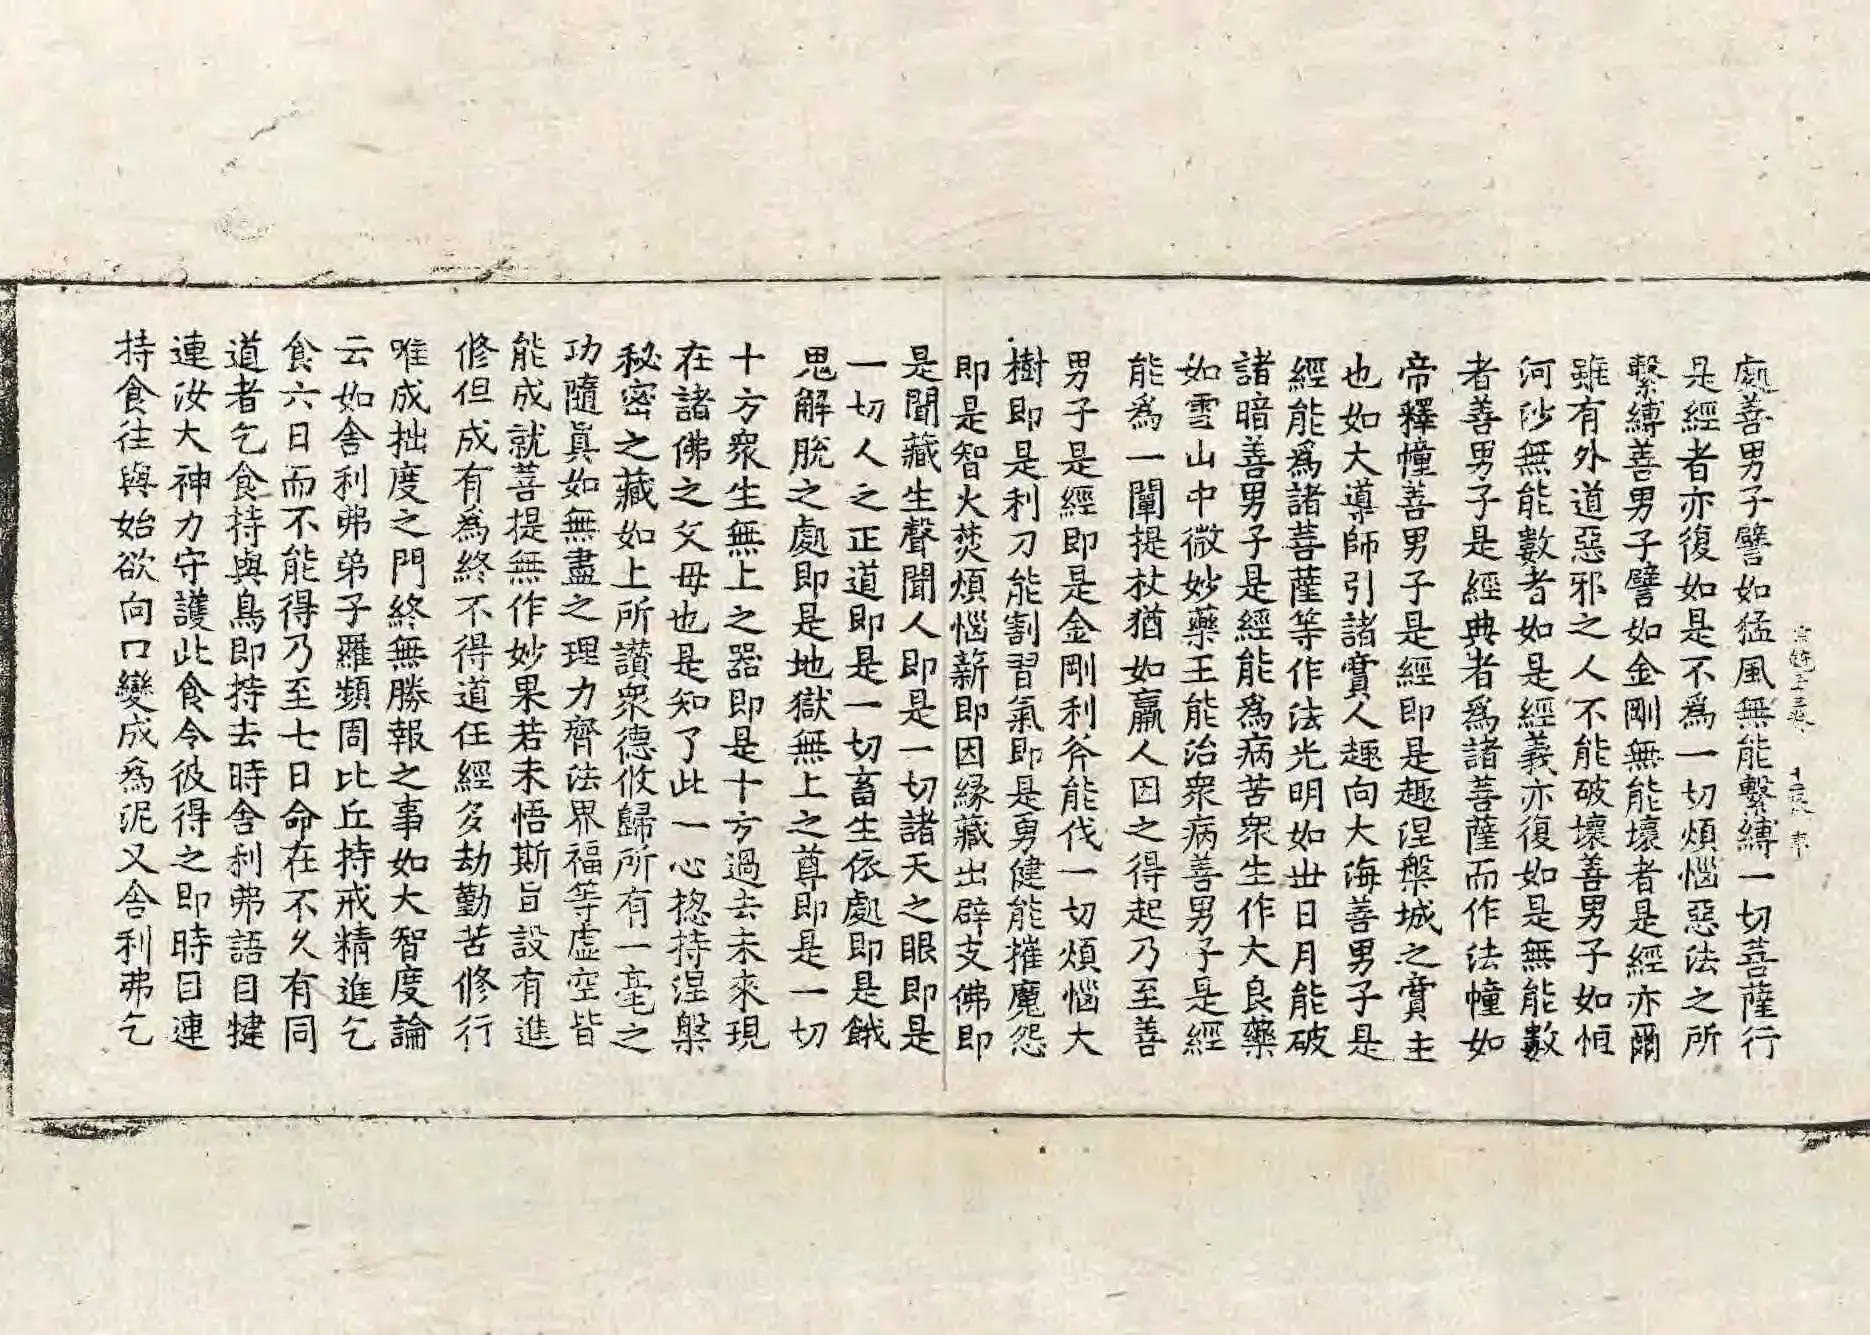 處善男子譬如猛風無能繫縛一切菩薩行
是經者亦復如是不爲一切煩惱惡法之所
繫縛善男子譬如金剛無能壞者是經亦爾
雖有外道惡邪之人不能破壞善男子如恒
河沙無能數者如是經義亦復如是無能數
者善男子是經典者爲諸菩薩而作法幢如
帝釋幢善男子是經即是趣涅槃城之商主
也如大導師引諸商人趣向大海善男子是
經能爲諸菩薩等作法光明如丗日月能破
諸暗善男子是經能爲病苦衆生作大良藥
如雪山中微妙藥王能治衆病善男子是經
能爲一闡提杖猶如羸人因之得起乃至善
男子是經即是金剛利斧能伐一切煩惱大
樹即是利刀能割習氣即是勇健能摧魔怨
即是智火焚煩惱薪即因緣藏出辟支佛即
是聞藏生聲聞人即是一切諸天之眼即是
一切人之正道即是一切畜生依處即是餓
鬼解脫之處即是地獄無上之尊即是一切
十方衆生無上之器即是十方過去未來現
在諸佛之父母也是知了此一心揔持涅槃
秘密之藏如上所讃衆德攸歸所有一毫之
功隨眞如無盡之理力齊法界福等虛空皆
能成就菩提無作妙果若未悟斯旨設有進
修但成有爲終不得道任經多劫勤苦修行
唯成拙度之門終無勝報之事如大智度論
云如舍利弗弟子羅頻周比丘持戒精進乞
食六日而不能得乃至七日命在不久有同
道者乞食持與鳥即持去時舍利弗語目犍
連汝大神力守護此食令彼得之即時目連
持食往與始欲向口變成爲泥又舍利弗乞